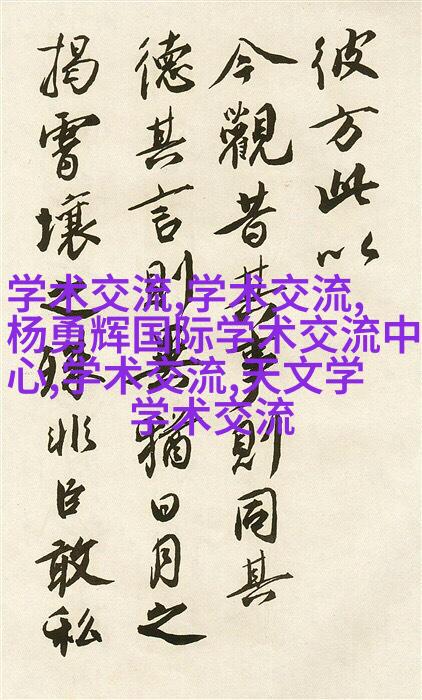 彼方此以
今觀昔其事則同其
德其言則異猶日月之
揭霄壤之殊非臣敢私
学术交流,学术交流,
杨勇辉国际学术交流中
心,学术交流,天文学
学术交流